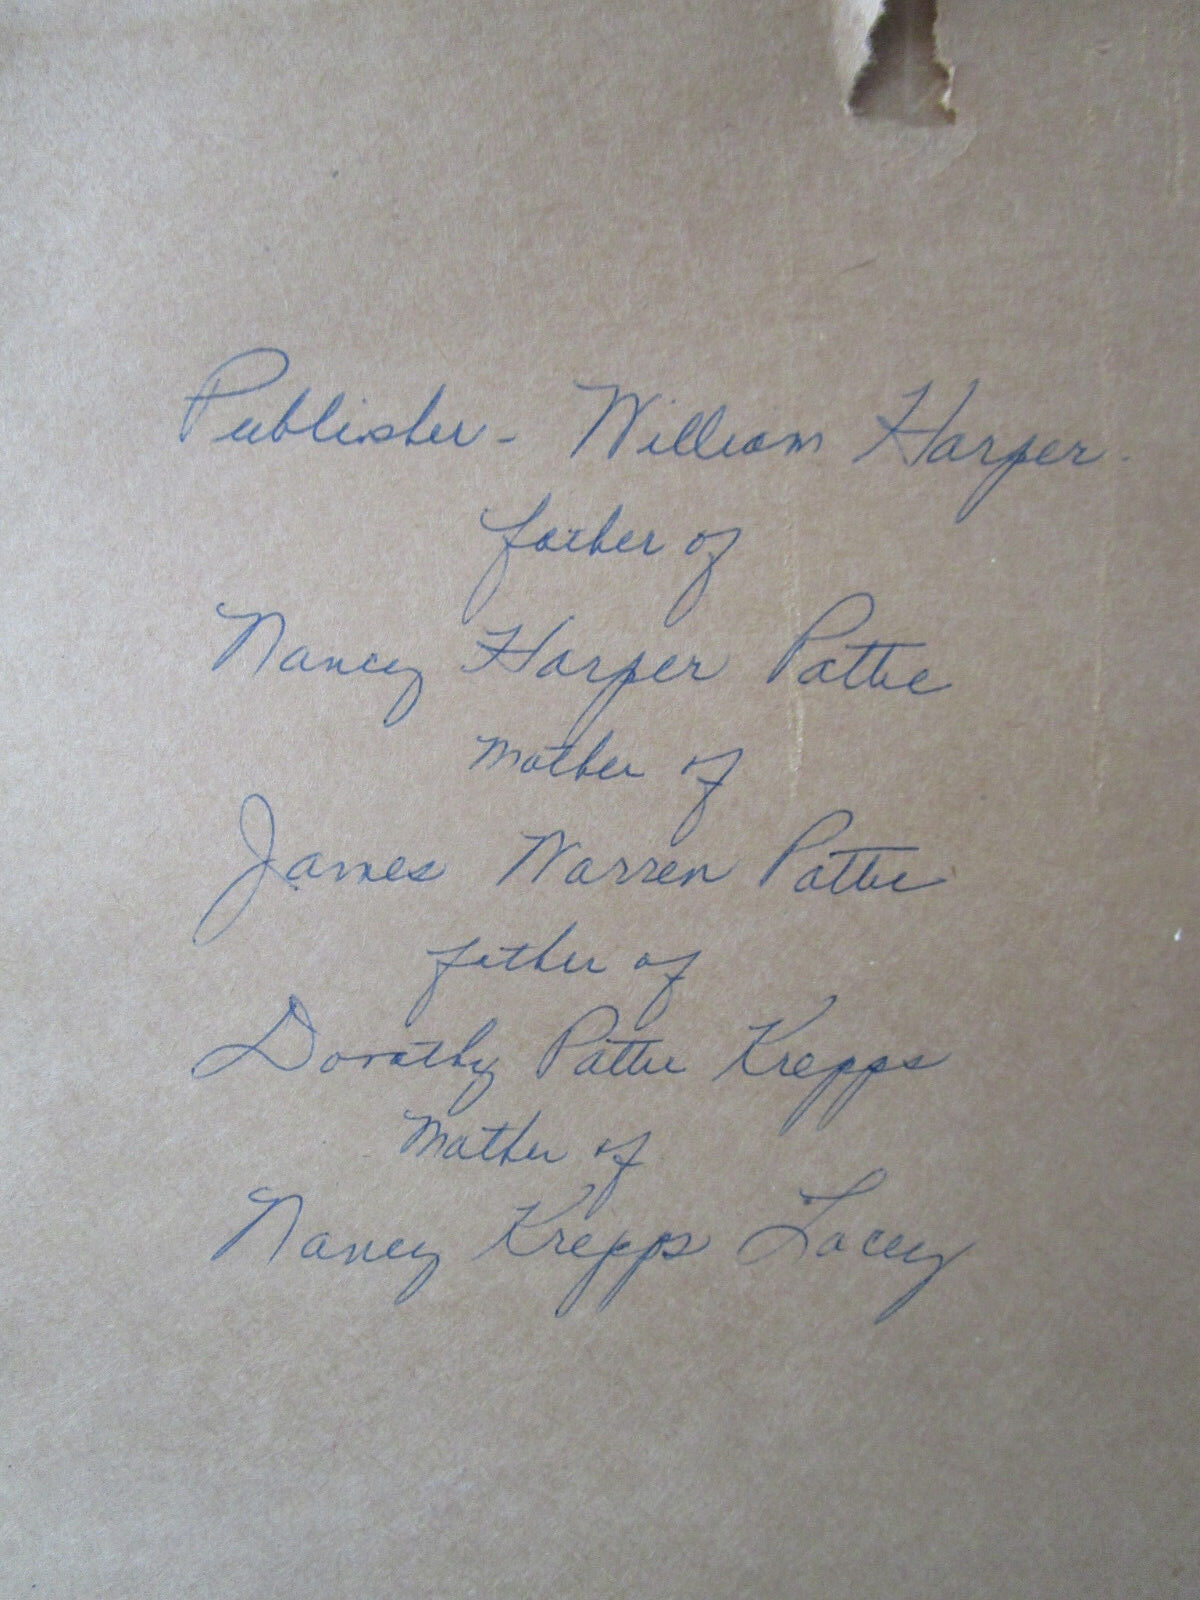 Publisher - William Harper -
father of
Nancy Harper Pattie
Mother of
James Warren Pattie
father of
Dorothy Pattie Krepps
Mother of
Nancy Krepps Lacey